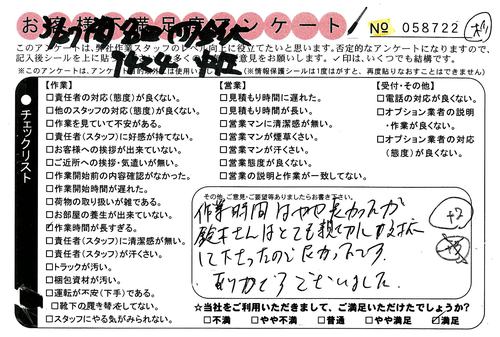 お客様不満足度アンケート
No 058722
このアンケートは、弊社作業スタッフのレベル向上に役立てたいと思います。否定的なアンケートになりますので、
記入後シールを上に貼
✓印は、いくつでも結構です。
※このアンケートは、
(※情報保護シールは1度がすと、再度貼りなおすことはできません)
チェックリスト
【作業】
□責任者の対応(態度)が良くない。
□他のスタッフの対応(態度)が良くない。
□作業を見ていて不安がある。
□責任者(スタッフ)に好感が持てない。
□お客様への挨拶が出来ていない。
□ご近所への挨拶・気遣いが無い。
□作業開始前の内容確認がなかった。
□作業開始時間が遅れた。
□荷物の取り扱いが雑である。
□お部屋の養生が出来ていない。
☑作業時間が長すぎる。
□責任者(スタッフ)に清潔感が無い。
□責任者(スタッフ)が汗くさい。
□トラックが汚い。
□梱包資材が汚い。
□運転が不安(下手)である。
□靴下の履き替をしてない。
□スタッフにやる気がみられない。
【営業】
□見積もり時間に遅れた。
□見積もり時間が長い。
□営業マンに清潔感が無い。
□営業マンが煙草くさい。
□営業マンが汗くさい。
□営業態度が良くない。
□営業の説明と作業が一致してない。
【受付・その他】
□電話の対応が良くない。
□オプション業者の説明
・作業が良くない。
□オプション業者の対応
(態度)が良くない。
その他、ご意見・ご要望等ありましたらお書き下さい。
作業時間はやや長かったが
鈴木さんはとても親切に対応
して下さったので良かったです。
ありがとうございました。
+2
☆当社をご利用いただきまして、ご満足いただけたでしょうか?
□不満 □やや不満 □普通 □やや満足 ☑満足